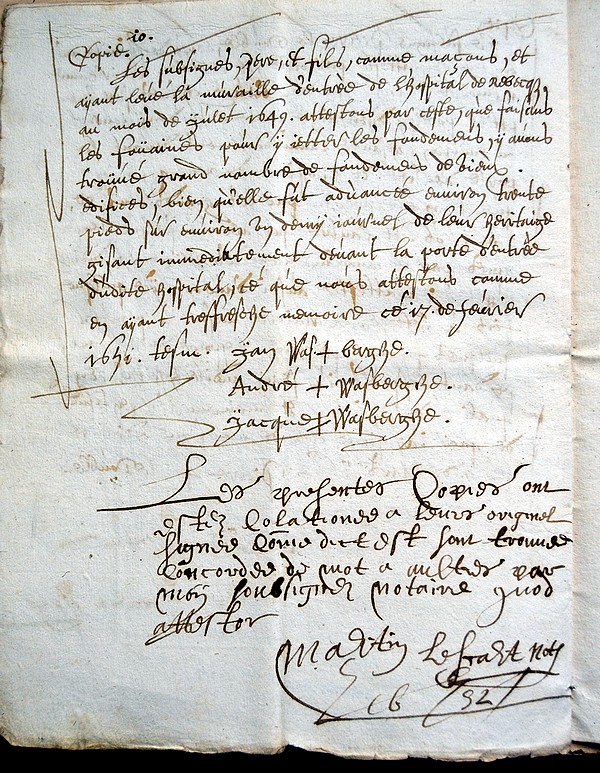 10.
Copie.
Les subsignes, pere, et fils, comme maçons, et
ayant levé la muraille d'entrée de l'hospital de Rebecq,
au mois de Julet 1649. attestons par ceste, que faisans
les fouaines pour y jetter les fondemens, y avons
trouvé grand nombre de fondemens de vieux
edifices, bien qu'elle fut advancée environ trente
pieds sur environ un demy journel de leur heritaige
gisant immediatement devant la porte d'entrée
dudite hospital, ce que nous attestons comme
en ayant tresfresche memoire ce 17. de febvrier
1651. tesm. Jan Was + berghe.
André + Wasberghe.
Jacque + Wasberghe.
Les presentes Copies ont
estez Colationée a leurs originel
signée Come dict est sont trouvee
Concordee de mot a aultres par
moy soubsignez notaire quod
attestor
Martin Lescaht Not
16 52